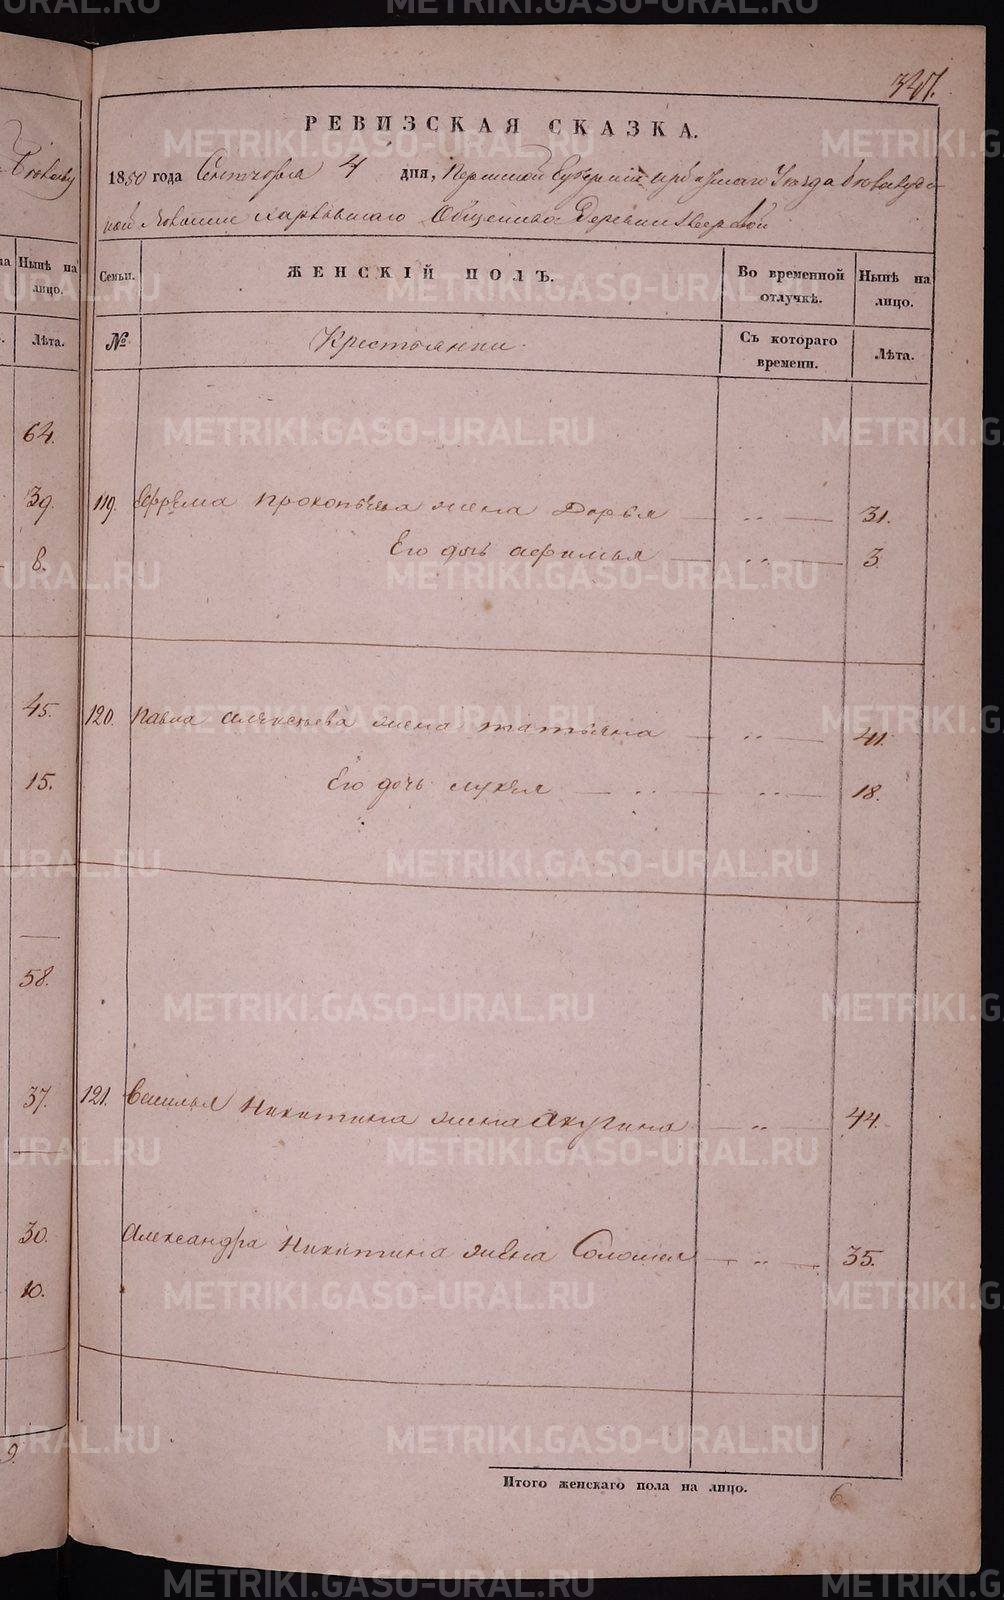 347.
РЕВИЗСКАЯ СКАЗКА.
1850 года Сентября 4 дня, Пермской Губернии Ирбитскаго Уезда
Общества Деревни
Семьи. ЖЕНСКІЙ ПОЛЪ. Во временной отлучкѣ. Нынѣ на лицо.
№ Крестьянки. Съ котораго времени. Лѣта.
119. Ефрема Прокопьева жена Дарья — " — 31.
Его дочь Афимья — " — 3.
120. Павла Алексѣева жена Татьяна — " — 41.
Его дочь Лукѣя — " — " — 18.
121. Василья Никитина жена Акулина — " — 44.
Александра Никитина жена Соломея — " — 35.
Итого женскаго пола на лицо. 6.
Нынѣ на лицо.
Лѣта.
64.
39.
8.
45.
15.
58.
37.
30.
10.
9.
METRIKI.GASO-URAL.RU